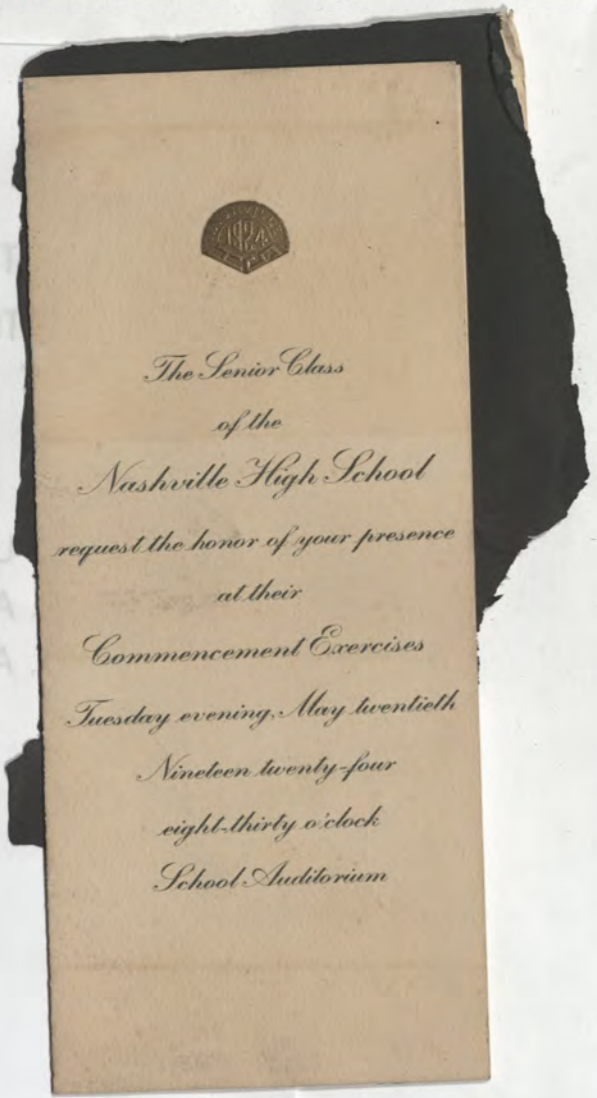 1924
The Senior Class
of the
Nashville High School
request the honor of your presence
at their
Commencement Exercises
Tuesday evening, May twentieth
Nineteen twenty-four
eight-thirty o'clock
School Auditorium